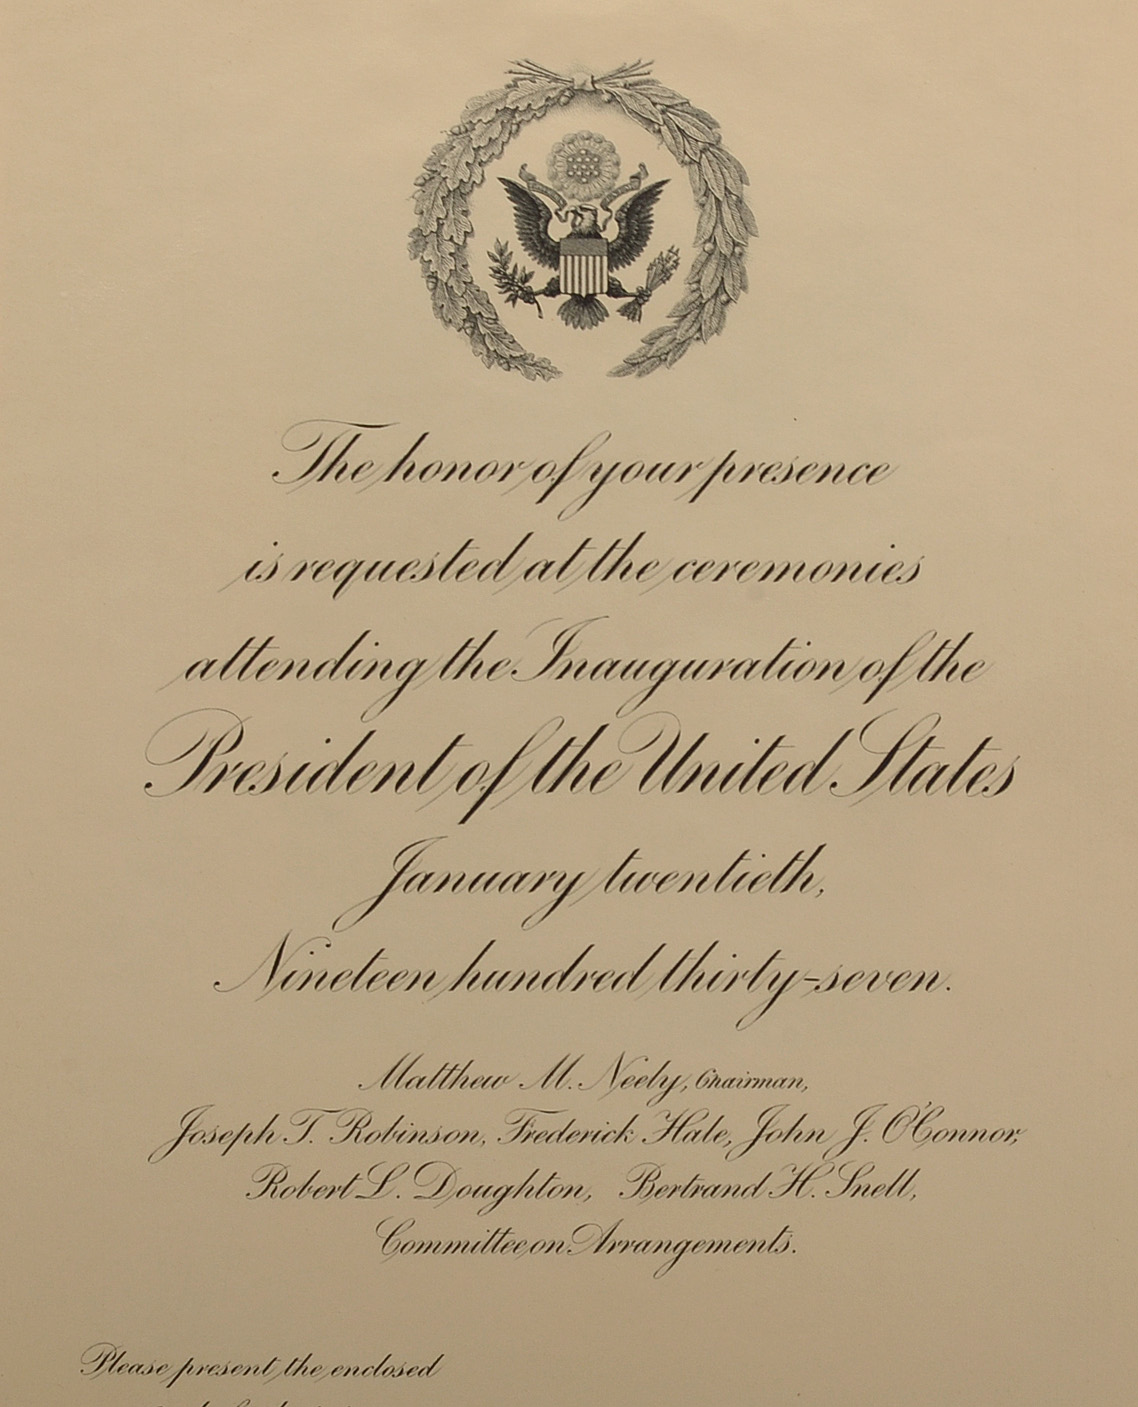 The honor of your presence
is requested at the ceremonies
attending the Inauguration of the
President of the United States
January twentieth,
Nineteen hundred thirty-seven.
Matthew M. Neely, Chairman,
Joseph T. Robinson, Frederick Hale, John J. O'Connor,
Robert L. Doughton, Bertrand H. Snell,
Committee on Arrangements.
Please present the enclosed